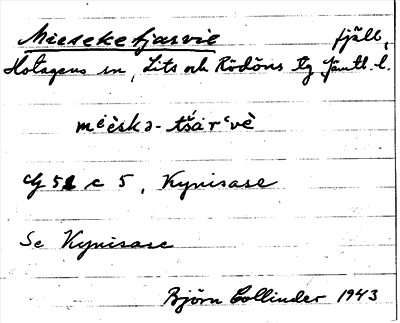 Mieskektjarvie fjäll,
Hotagens sn, Lits och Rödöns tg Jämtl. l.
mèèskə-tšàr'vè
Cf 52 c 5, Kynisase
Se Kynisase
Björn Collinder 1943